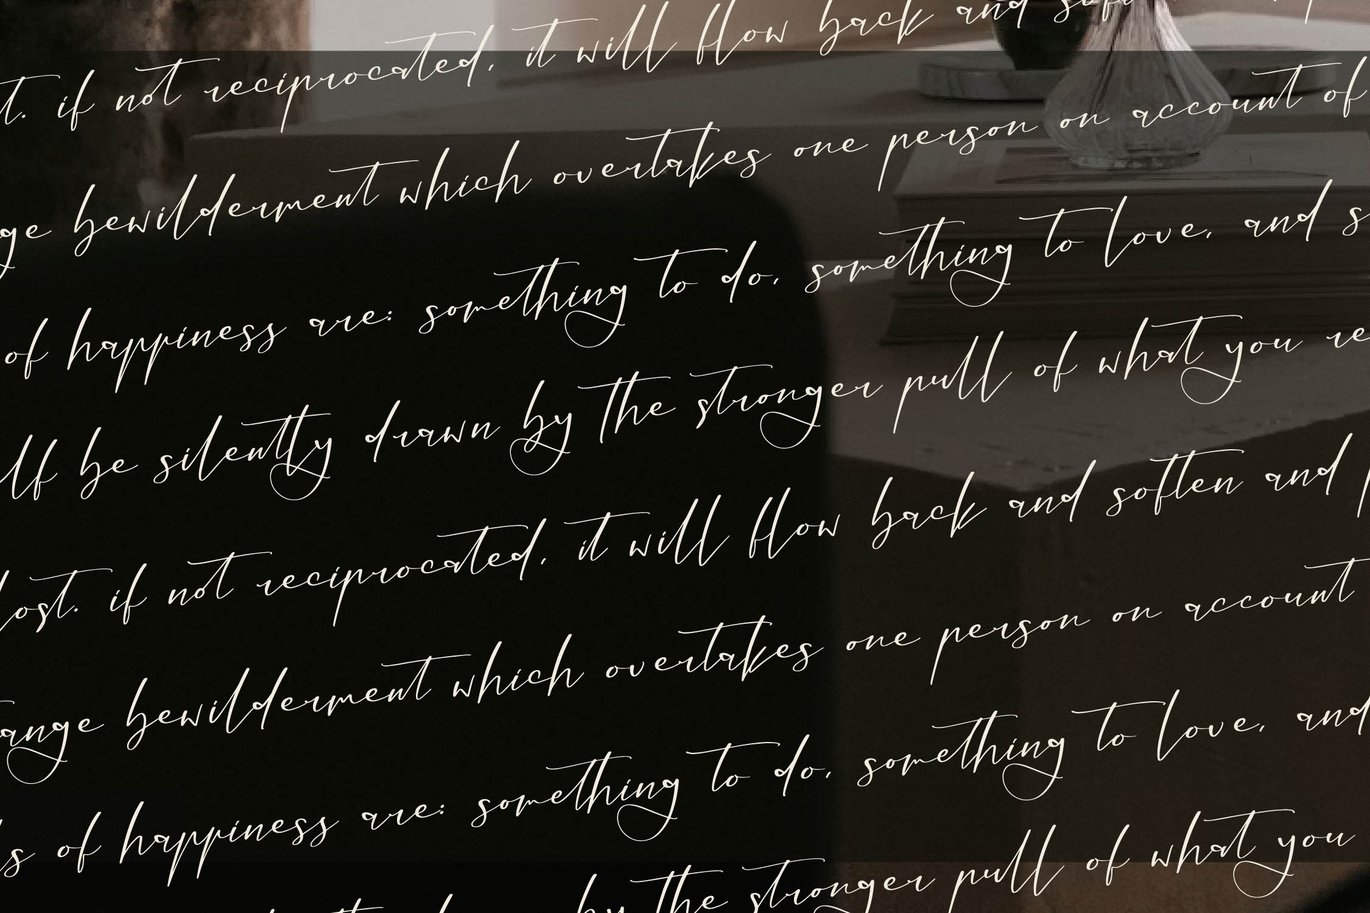 t. if not reciprocated, it will flow back and soft
ge bewilderment which overtakes one person on account of
of happiness are: something to do, something to love, and s
lf be silently drawn by the stronger pull of what you re
lost. if not reciprocated, it will flow back and soften and p
ange bewilderment which overtakes one person on account
s of happiness are: something to do, something to love, and
by the stronger pull of what you